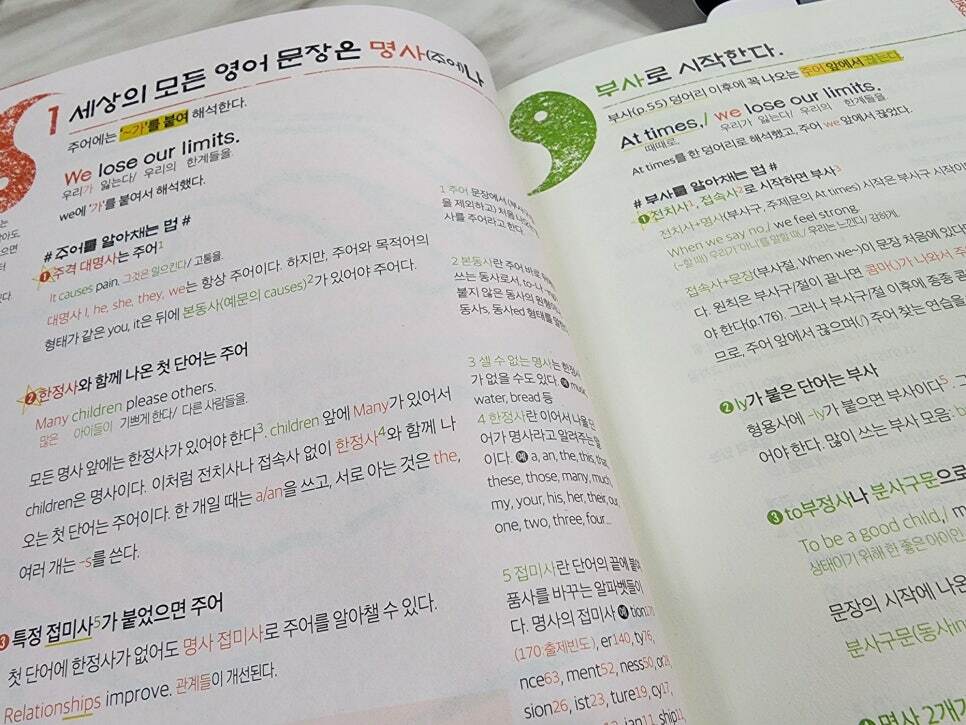 1 세상의 모든 영어 문장은 명사(주어)나
주어에는 '~가'를 붙여 해석한다.
We lose our limits.
우리가 잃는다/ 우리의 한계들을
we에 '가'를 붙여서 해석했다.
# 주어를 알아채는 법 #
1 주격 대명사는 주어1
It causes pain. 그것은 일으킨다/ 고통을.
대명사 I, he, she, they, we는 항상 주어이다. 하지만, 주어와 목적어의
형태가 같은 you, it은 뒤에 본동사(예문의 causes)2가 있어야 주어다.
2 한정사와 함께 나온 첫 단어는 주어
Many children please others.
많은 아이들이 기쁘게 한다/ 다른 사람들을.
모든 명사 앞에는 한정사가 있어야 한다3. children 앞에 Many가 있어서
children은 명사이다. 이처럼 전치사나 접속사 없이 한정사4와 함께 나
오는 첫 단어는 주어이다. 한 개일 때는 a/an을 쓰고, 서로 아는 것은 the,
여러 개는 -s를 쓴다.
3 특정 접미사5가 붙었으면 주어
첫 단어에 한정사가 없어도 명사 접미사로 주어를 알아챌 수 있다.
Relationships improve. 관계들이 개선된다.
1 주어 문장에서 (부사
을 제외하고) 처음 나오
사를 주어라고 한다.
2 본동사란 주어 바로
쓰는 동사로서, to나
붙지 않은 동사의 원형
동사s, 동사ed 형태를 말한
3 셀 수 없는 명사는 한정사
가 없을 수도 있다. 예 music
water, bread 등
4 한정사란 이어서 나올 단
어가 명사라고 알려주는 말
이다. 예 a, an, the, this, that,
these, those, many, much,
my, your, his, her, their, our,
one, two, three, four...
5 접미사란 단어의 끝에 붙여
품사를 바꾸는 알파벳들이
다. 명사의 접미사 예 tion170
(170:출제빈도), er140, ty76,
nce63, ment52, ness50, or28,
sion26, ist23, ture19, cy17,
ian11, ship11
부사로 시작한다.
부사(p.55) 덩어리 이후에 꼭 나오는 주어 앞에서 끊는다.
At times,/ we lose our limits.
때때로, 우리가 잃는다/ 우리의 한계들을
At times를 한 덩어리로 해석했고, 주어 we 앞에서 끊었다.
# 부사를 알아채는 법 #
1 전치사1, 접속사2로 시작하면 부사3
전치사+명사(부사구, 주제문의 At times) 시작은 부사구 시작이
When we say no,/ we feel strong.
(~할 때) 우리가 '아니'를 말할 때/ 우리는 느낀다/ 강하게.
접속사+문장(부사절, When we~)이 문장 처음에 있다
다. 원칙은 부사구/절이 끝나면 콤마(,)가 나와서 주
야 한다(p.176). 그러나 부사구/절 이후에 종종 콤
므로, 주어 앞에서 끊으며(/) 주어 찾는 연습을
2 ly가 붙은 단어는 부사
형용사에 -ly가 붙으면 부사이다5. 그
어야 한다. 많이 쓰는 부사 모음:
3 to부정사나 분사구문으로
To be a good child,/
상태이기 위해 한 좋은 아이인
문장의 시작에 나온
분사구문(동사ing
명사 2개가